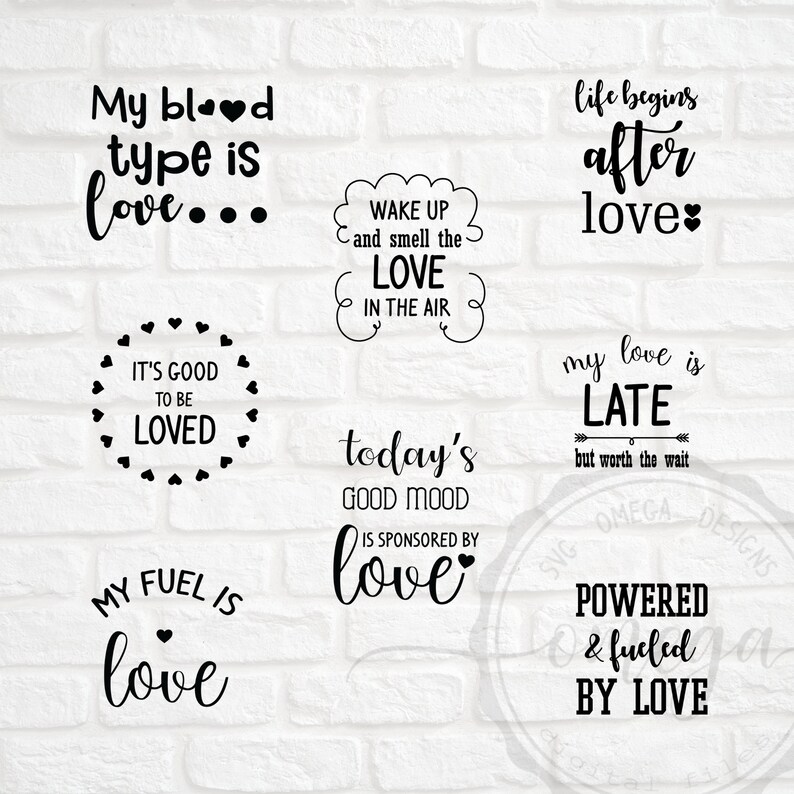 My blood
type is
love...
WAKE UP
and smell the
LOVE
IN THE AIR
life begins
after
love
IT'S GOOD
TO BE
LOVED
today's
GOOD MOOD
IS SPONSORED BY
love
my love is
LATE
but worth the wait
MY FUEL IS
love
POWERED
& fueled
BY LOVE
SVG OMEGA DESIGNS
omega
digital files